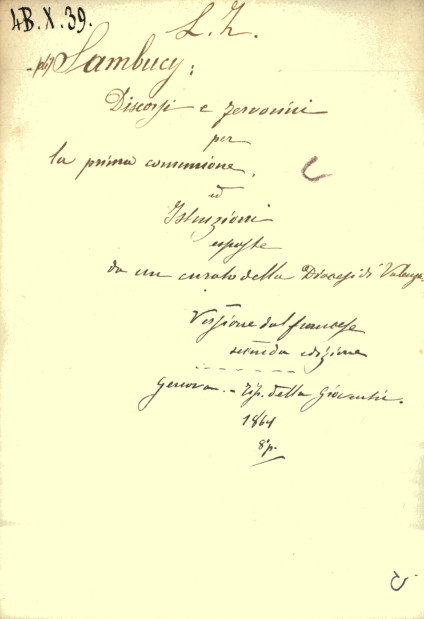 4B.X.39.
L. Z.
Sambucy:
Discorsi e fervorini
per
la prima comunione,
ed
Istruzioni
esposte
da un curato della Diocesi di Valenza.
Versione dal francese
seconda edizione
Genova. - Tip. della Gioventù.
1864
8º p.